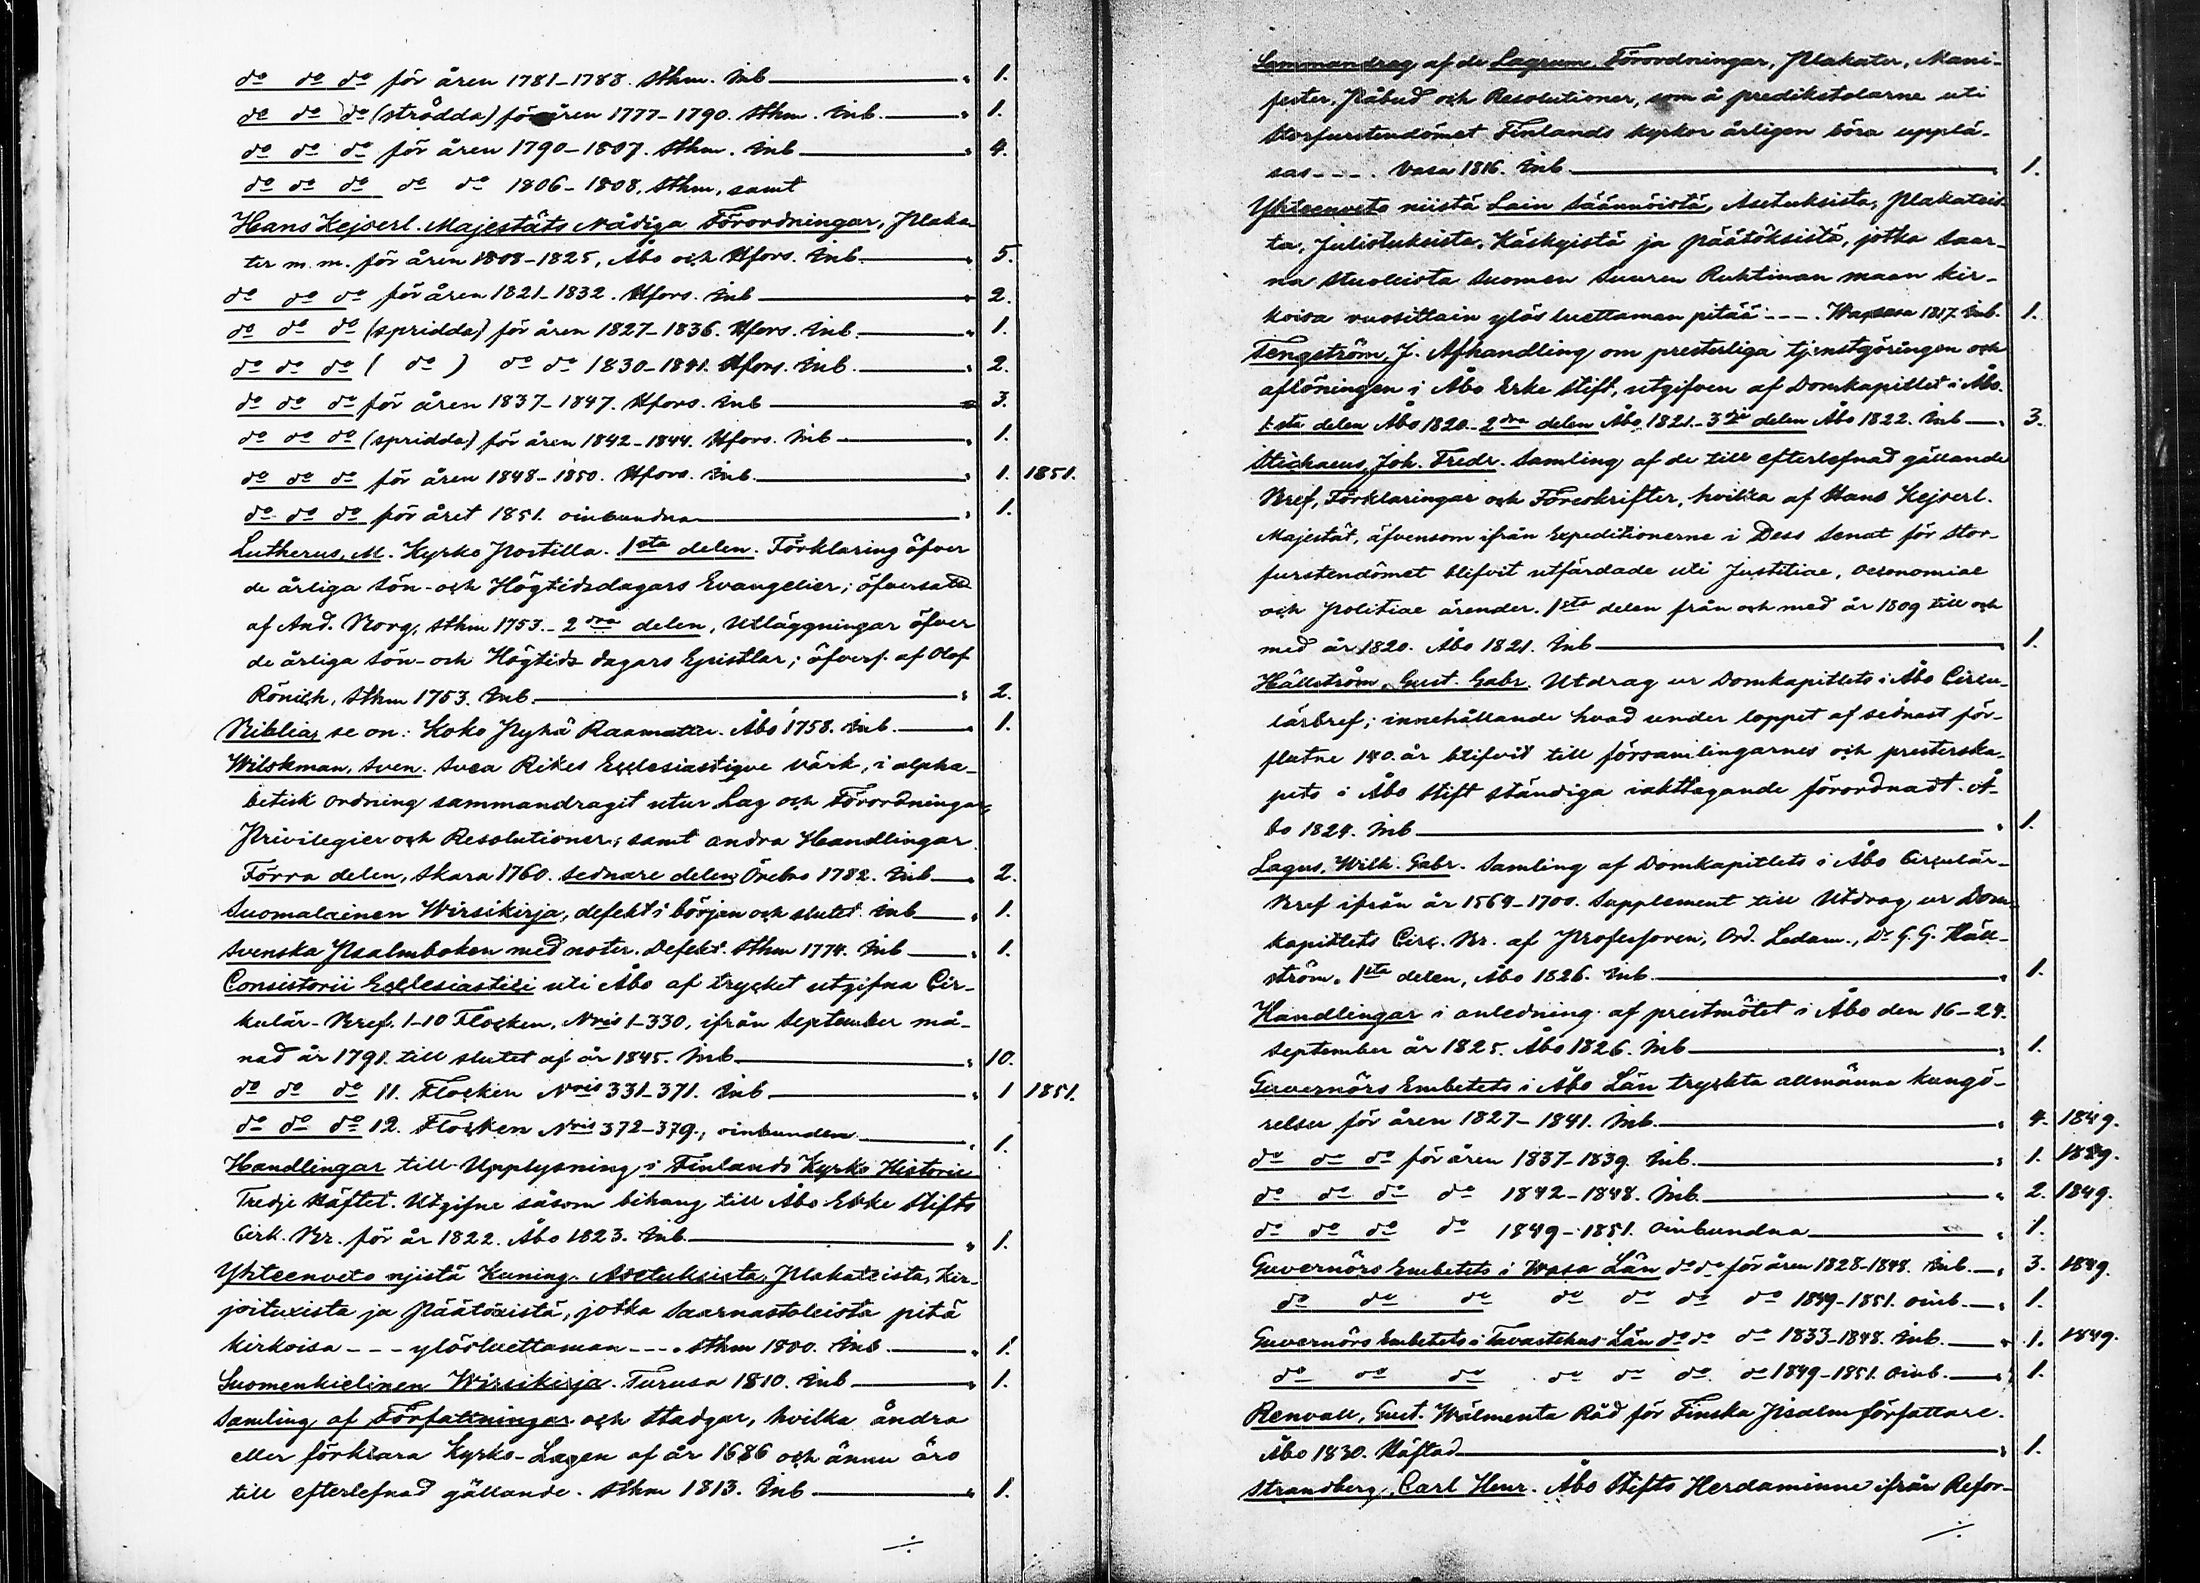 do do do för åren 1781-1788. Sthm. Inb — " 1.
do do do (strödda) för åren 1777-1790. Sthm. Inb. — " 1.
do do do för åren 1790-1807. Sthm. Inb — " 4.
do do do do do 1806-1808. Sthm, samt
Hans Kejserl. Majestäts Nådiga Förordningar, Plaka-
ter m.m. för åren 1808-1825, Åbo och Hfors. Inb. — " 5.
do do do för åren 1821-1832. Hfors. Inb — " 2.
do do do (spridda) för åren 1827-1836. Hfors. Inb. — " 1.
do do do ( do ) do do 1830-1841. Hfors. Inb. — " 2.
do do do för åren 1837-1847. Hfors. Inb — " 3.
do do do (spridda) för åren 1842-1844. Hfors. Inb — " 1.
do do do för åren 1848-1850. Hfors. Inb. — " 1. 1851.
do do do för året 1851. oinbundna — " 1.
Lutherus, M. Kyrko Postilla. 1sta delen. Förklaring öfver
de årliga Sön- och Högtidsdagars Evangelier; öfversatt
af And. Borg, Sthm 1753. - 2dra delen, Utläggningar öfver
de årliga Sön- och Högtids dagars Epistlar; öfvers. af Olof
Rönigk, Sthm 1753. Inb. — " 2.
Biblia, se on: Koko Pyhä Raamattu. Åbo 1758. Inb. — " 1.
Wilskman, Sven. Svea Rikes Ecclesiastique Värk, i alpha-
betisk ordning sammandragit utur Lag och Förordningar,
Privilegier och Resolutioner, samt andra Handlingar.
Förra delen, Skara 1760. Sednare delen, Örebro 1782. Inb — " 2.
Suomalainen Wirsikirja, defekt i början och slutet. Inb — " 1.
Svenska Psalmboken med noter. Defekt. Sthm 1774. Inb — " 1.
Consistorii Ecclesiastici uti Åbo af trycket utgifna Cir-
kulär-Bref. 1-10 Flocken, Nris 1-330, ifrån September må-
nad år 1791. till slutet af år 1845. Inb — " 10.
do do do 11. Flocken Nris 331-371. Inb — " 1 1851.
do do do 12. Flocken Nris 372-379., oinbunden — " 1.
Handlingar till Upplysning i Finlands Kyrko Historie
Tredje Häftet. Utgifne såsom bihang till Åbo Erke Stifts
Cirk. Br. för år 1822. Åbo 1823. Inb. — " 1.
Yhteenveto nijstä Kuning. Asetuksista, Plakateista, Kir-
joituxista ja Päätöxistä, jotka Saarnastoleista pitä
kirkoisa - - - ylösluettaman - - -. Sthm 1800. Inb. — " 1.
Suomenkielinen Wirsikirja. Turusa 1810. Inb — " 1.
Samling af Författningar och Stadgar, hvilka ändra
eller förklara Kyrko-Lagen af år 1686 och ännu äro
till efterlefnad gällande. Sthm 1813. Inb — " 1.
./.
Sammandrag af de Lagrum, Förordningar, Plakater, Mani-
fester, Påbud och Resolutioner, som å predikstolarne uti
Storfurstendömet Finlands kyrkor årligen böra upplä-
sas - - -. Vasa 1816. Inb. — " 1.
Yhteenveto niistä Lain Säännöistä, Asetuksista, Plakateis-
ta, Julistuksista, Käskyistä ja päätöksistä, jotka Saar-
na Stuoleista Suomen Suuren Ruhtinan maan kir-
koisa vuosittain ylös luettaman pitää - - -. Waasasa 1817. Inb. 1.
Tengström, J. Afhandling om presterliga tjenstgöringen och
aflöningen i Åbo Erke Stift, utgifven af Domkapitlet i Åbo.
1:sta delen Åbo 1820. - 2dra delen Åbo 1821. - 3dje delen Åbo 1822. Inb — " 3.
Stichaeus, Joh. Fredr. Samling af de till efterlefnad gällande
Bref, Förklaringar och Föreskrifter, hvilka af Hans Kejserl.
Majestät, äfvensom ifrån Expeditionerne i Dess Senat för Stor-
furstendömet blifvit utfärdade uti Justitiae, Oeconomiae
och Politiae ärender. 1sta delen från och med år 1809 till och
med år 1820. Åbo 1821. Inb — " 1.
Hällström, Gust. Gabr. Utdrag ur Domkapitlets i Åbo Circu-
lärbref; innehållande hvad under loppet af sednast för-
flutne 180. år blifvit till församlingarnes och presterska-
pets i Åbo Stift ständiga iakttagande förordnadt. Å-
bo 1824. Inb — " 1.
Lagus, Wilh. Gabr. Samling af Domkapitlets i Åbo Circulär-
Bref ifrån år 1564-1700. Supplement till Utdrag ur Dom-
kapitlets Circ. Br. af Professoren, Ord. Ledam., Dr G.G. Häll-
ström. 1sta delen, Åbo 1826. Inb. — " 1.
Handlingar i anledning af prestmötet i Åbo den 16-24.
September år 1825. Åbo 1826. Inb — " 1.
Guvernörs Embetets i Åbo Län tryckta allmänna kungö-
relser för åren 1827-1841. Inb. — " 4. 1849.
do do do för åren 1837-1839. Inb. — " 1. 1849.
do do do do 1842-1848. Inb. — " 2. 1849.
do do do do 1849-1851. oinbundna — " 1.
Guvernörs Embetets i Wasa Län do do för åren 1828-1848. Inb. — " 3. 1849.
do do do do do do do 1849-1851. oinb. — " 1.
Guvernörs Embetets i Tavastehus Län do do do 1833-1848. Inb. — " 1. 1849.
do do do do do do do 1849-1851. oinb. — " 1.
Renvall, Gust. Wälmenta Råd för Finska Psalmförfattare.
Åbo 1830. Häftad — " 1.
Strandberg, Carl Henr. Åbo Stifts Herdaminne ifrån Refor-
./.